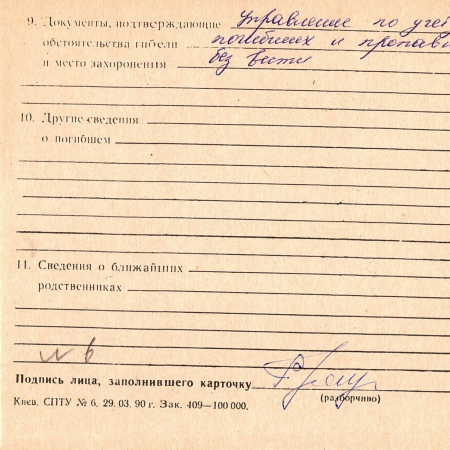 9. Документы, подтверждающие Управление по учёт
обстоятельства гибели погибших и пропав
и место захоронения без вести
10. Другие сведения
о погибшем
11. Сведения о ближайших
родственниках
№ 6
Подпись лица, заполнившего карточку
(разборчиво)
Киев. СПТУ № 6. 29. 03. 90 г. Зак. 409—100 000.